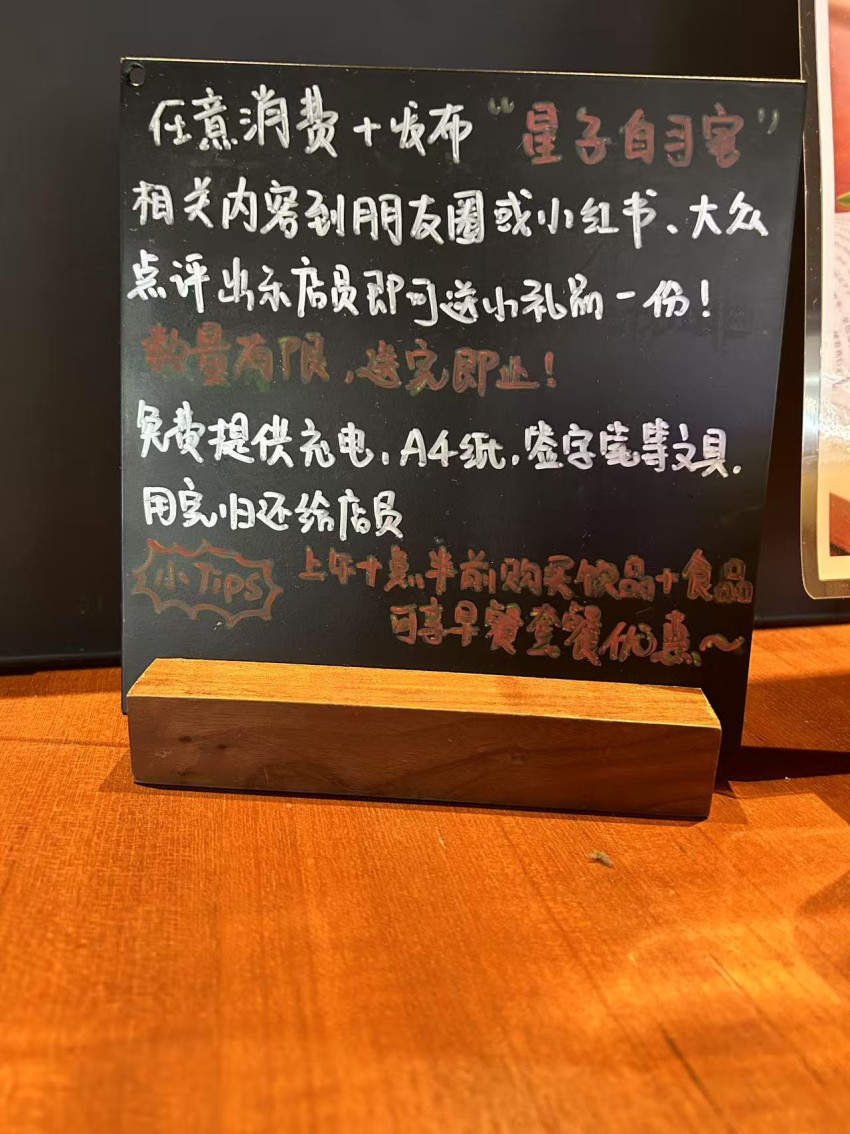 任意消费+发布“星子自习室”
相关内容到朋友圈或小红书、大众
点评出示店员即可送小礼品一份!
数量有限,送完即止!
免费提供充电,A4纸,签字笔等文具.
用完归还给店员
小Tips
上午十点半前购买饮品+食品
可享早餐套餐优惠~